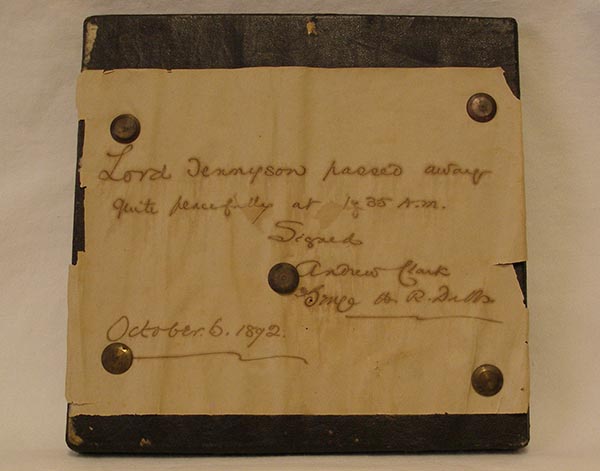 Lord Tennyson passed away
quite peacefully at 1.35 A.M.
Signed
Andrew Clark
R. Dabbs
October. 6. 1892.